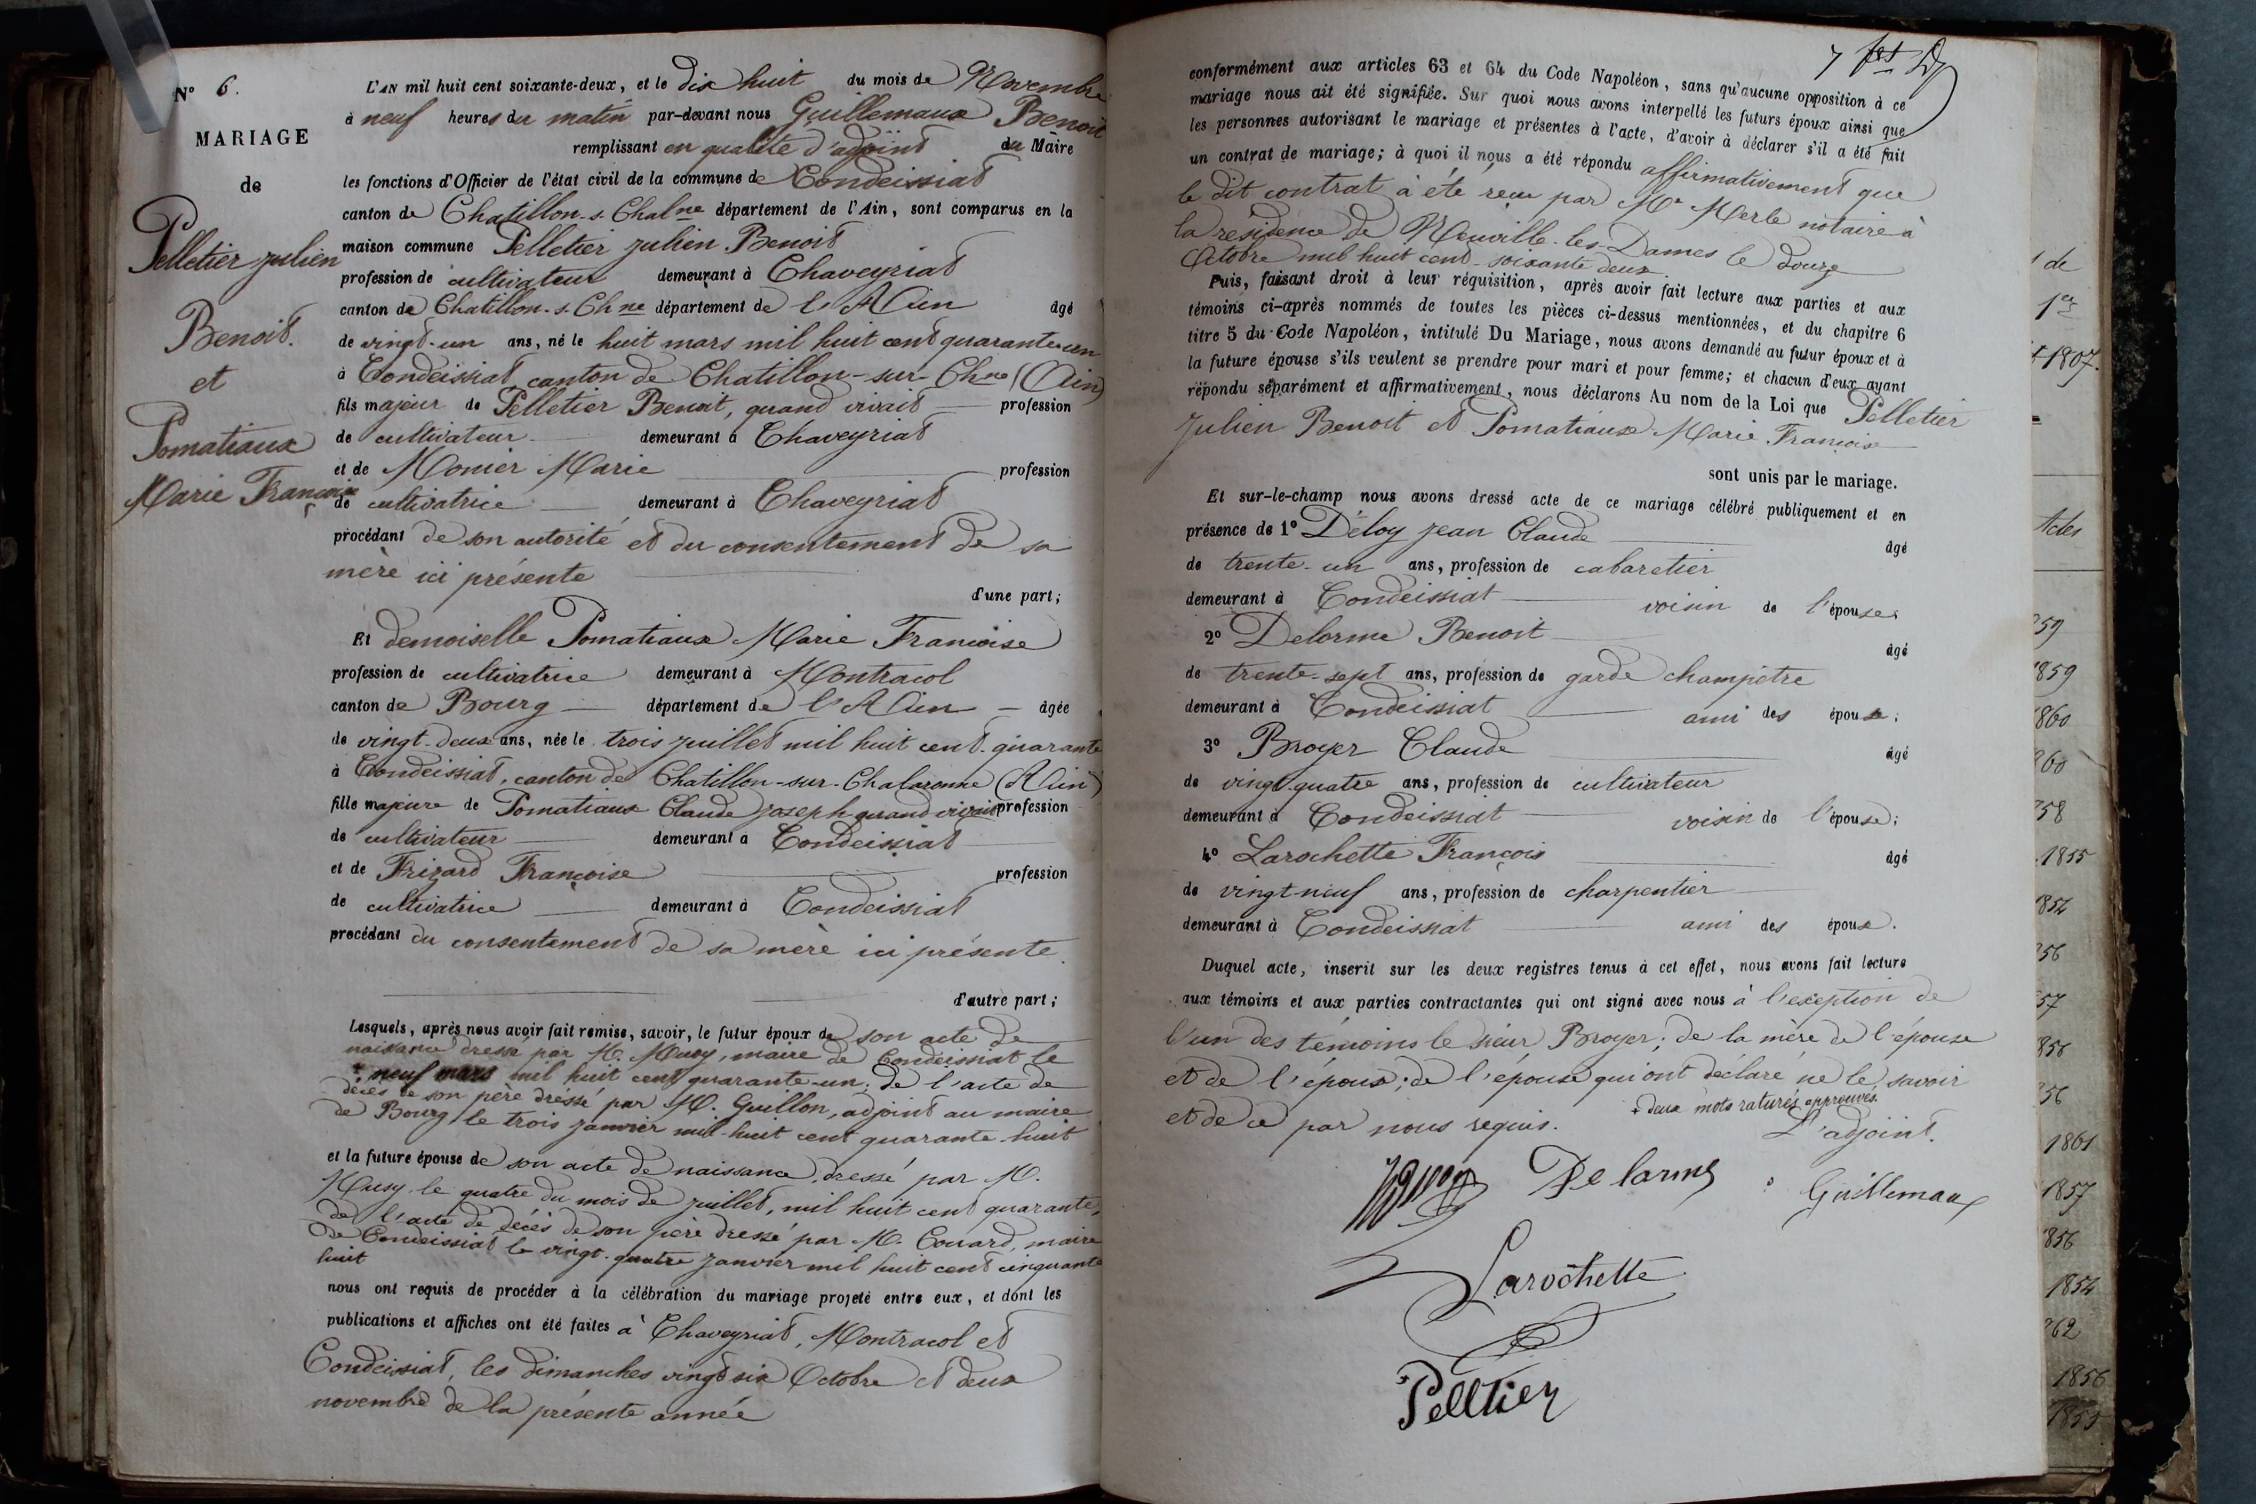 N° 6.
MARIAGE
de
Pelletier Julien
Benoit.
et
Pomatiaux
Marie Françoise
L'AN mil huit cent soixante-deux, et le dix huit du mois de Novembre
à neuf heures du matin par-devant nous Guillemaux Benoit
remplissant en qualité d'adjoint du Maire
les fonctions d'Officier de l'état civil de la commune de Condeissiat
canton de Chatillon-s-Chalne département de l'Ain, sont comparus en la
maison commune Pelletier Julien Benoit
profession de cultivateur demeurant à Chaveyriat
canton de Chatillon-s-Chne département de l'Ain âgé
de vingt-un ans, né le huit mars mil huit cent quarante-un
à Condeissiat, canton de Chatillon-sur-Chne (Ain)
fils majeur de Pelletier Benoit, quand vivait profession
de cultivateur demeurant à Chaveyriat
et de Monier Marie profession
de cultivatrice demeurant à Chaveyriat
procédant de son autorité et du consentement de sa
mère ici présente
d'une part;
Et demoiselle Pomatiaux Marie Françoise
profession de cultivatrice demeurant à Montracol
canton de Bourg département de l'Ain âgée
de vingt-deux ans, née le trois juillet mil huit cent quarante
à Condeissiat, canton de Chatillon-sur-Chalaronne (Ain)
fille majeure de Pomatiaux Claude Joseph quand vivait profession
de cultivateur demeurant à Condeissiat
et de Frizard Françoise profession
de cultivatrice demeurant à Condeissiat
procédant du consentement de sa mère ici présente.
d'autre part;
Lesquels, après nous avoir fait remise, savoir, le futur époux de son acte de
naissance dressé par M. Musy, maire de Condeissiat le
neuf mars mil huit cent quarante-un; de l'acte de
décès de son père dressé par M. Guillon, adjoint au maire
de Bourg le trois janvier mil-huit cent quarante-huit
et la future épouse de son acte de naissance, dressé par M.
Musy le quatre du mois de juillet, mil huit cent quarante,
de l'acte de décès de son père dressé par M. Couard, maire
de Condeissiat le vingt-quatre janvier mil huit cent cinquante
huit
nous ont requis de procéder à la célébration du mariage projeté entre eux, et dont les
publications et affiches ont été faites à Chaveyriat, Montracol et
Condeissiat, les dimanches vingt six Octobre et deux
novembre de la présente année
conformément aux articles 63 et 64 du Code Napoléon, sans qu'aucune opposition à ce
mariage nous ait été signifiée. Sur quoi nous avons interpellé les futurs époux ainsi que
les personnes autorisant le mariage et présentes à l'acte, d'avoir à déclarer s'il a été fait
un contrat de mariage; à quoi il nous a été répondu affirmativement que
le dit contrat à été reçu par Me Merle notaire à
la résidence de Neuville-les-Dames le douze
Octobre mil huit cent-soixante deux
Puis, faisant droit à leur réquisition, après avoir fait lecture aux parties et aux
témoins ci-après nommés de toutes les pièces ci-dessus mentionnées, et du chapitre 6
titre 5 du Code Napoléon, intitulé Du Mariage, nous avons demandé au futur époux et à
la future épouse s'ils veulent se prendre pour mari et pour femme; et chacun d'eux ayant
répondu séparément et affirmativement, nous déclarons Au nom de la Loi que Pelletier
Julien Benoit et Pomatiaux Marie Françoise
sont unis par le mariage.
Et sur-le-champ nous avons dressé acte de ce mariage célébré publiquement et en
présence de 1° Déloy Jean Claude âgé
de trente-un ans, profession de cabaretier
demeurant à Condeissiat voisin de l'épouse;
2° Delorme Benoit âgé
de trente-sept ans, profession de garde champêtre
demeurant à Condeissiat ami des époux;
3° Broyer Claude âgé
de vingt-quatre ans, profession de cultivateur
demeurant à Condeissiat voisin de l'épouse;
4° Larochette François âgé
de vingt-neuf ans, profession de charpentier
demeurant à Condeissiat ami des époux.
Duquel acte, inscrit sur les deux registres tenus à cet effet, nous avons fait lecture
aux témoins et aux parties contractantes qui ont signé avec nous à l'exception de
l'un des témoins le sieur Broyer; de la mère de l'épouse
et de l'époux; de l'épouse qui ont déclaré ne le savoir
et de ce par nous requis.
+ deux mots raturés approuvés.
L'adjoint.
Delorme
Guillemaux
Larochette
Pelltier
de
1er
1807.
Actes
859
1859
1860
860
858
1855
1854
856
857
856
856
1861
1857
1856
1854
862
1856
1855